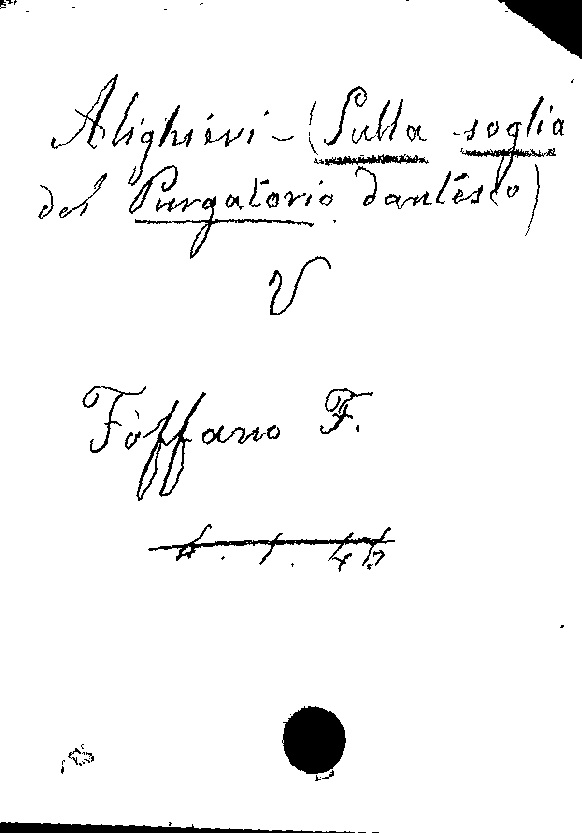 Alighieri - (Sulla soglia
del Purgatorio dantesco)
V
Fòffano F.
4. 1. 45